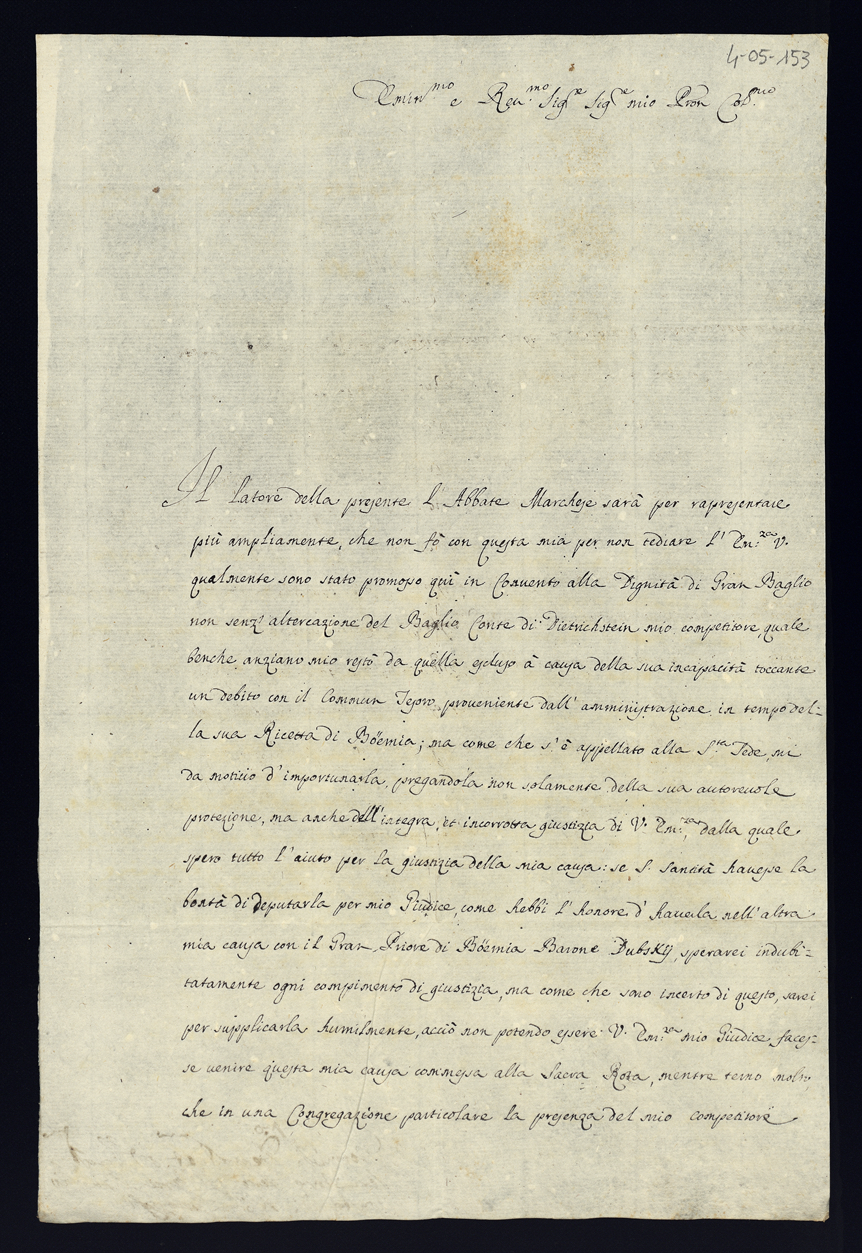 4-05-153
Emin.mo e Reu.mo Sig.e Sig.e mio Pron Col.mo
Il latore della presente l'Abbate Marchese sarà per rapresentare
più ampliamente, che non fò con questa mia per non tediare l'Em.za V.
qualmente sono stato promosso quì in Convento alla Dignità di Gran Baglio
non senz'altercazione del Baglio Conte di Dietrichstein mio competitore, quale
benche anziano mio restò da quella escluso à causa della sua incapacità toccante
un debito con il Commun Tesoro, proveniente dall'amministrazione in tempo del=
la sua Ricetta di Böemia; ma come che s'è appellato alla S.ta Sede, mi
da moticio d'importunarla, pregandola non solamente della sua autoreuole
protezione, ma anche dell'integra, et incorrotta giustizia di V. Em.za, dalla quale
spero tutto l'aiuto per la giustizia della mia causa: se S. Santità hauesse la
bontà di deputarla per mio Giudice, come hebbi l'honore d'hauerla nell'altra
mia causa con il Gran Priore di Böemia Barone Dubskÿ, sperarei indubi=
tatamente ogni compimento di giustizia, ma come che sono incerto di questo, sarei
per supplicarla humilmente, acciò non potendo essere V. Em.za mio Giudice, faces=
se venire questa mia causa commessa alla Sacra Rota, mentre temo molto,
che in una Congregazione particolare la presenza del mio competitore